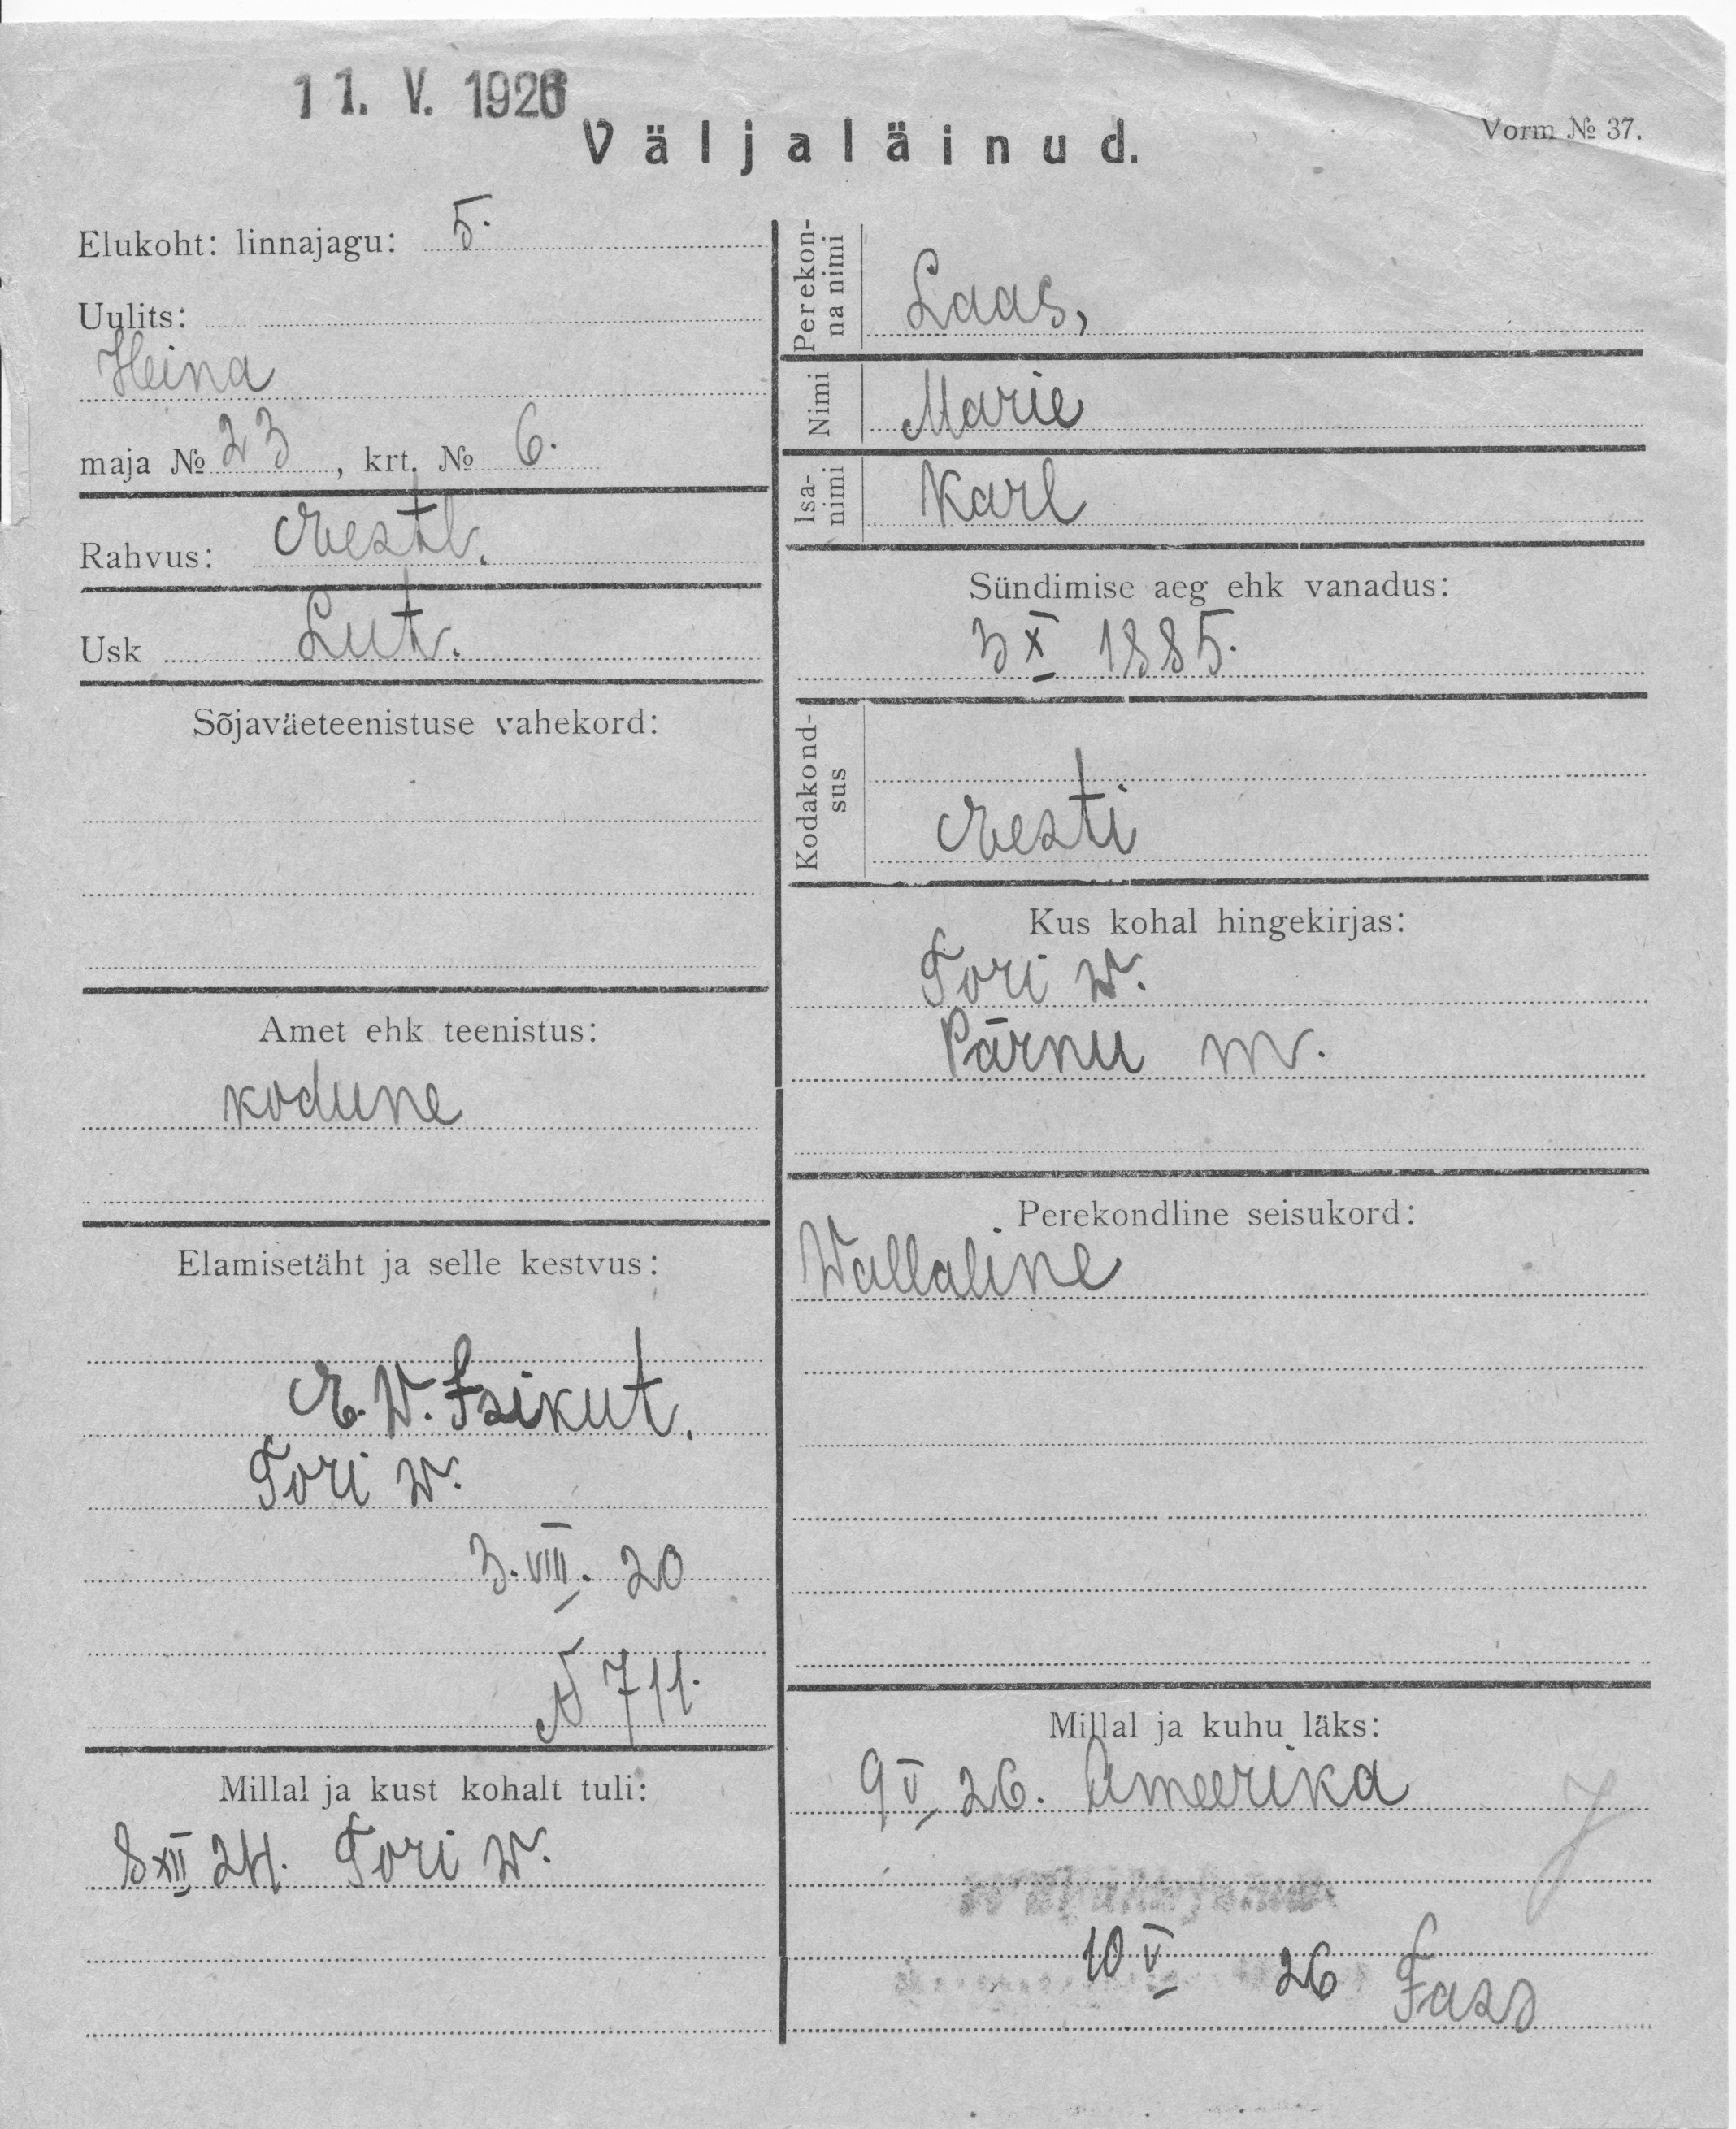 11. V. 1926
Väljaläinud.
Vorm № 37.
Elukoht: linnajagu: 5.
Uulits:
Heina
maja № 23, krt. № 6.
Rahvus: Eestl.
Usk Lut.
Sõjaväeteenistuse vahekord:
Amet ehk teenistus:
kodune
Elamisetäht ja selle kestvus:
E. W. Isikut.
Tori w.
3. VIII. 20
N 711.
Millal ja kust kohalt tuli:
8 XII 24. Tori w.
Perekon-
na nimi
Laas,
Nimi
Marie
Isa-
nimi
Karl
Sündimise aeg ehk vanadus:
3 X 1885.
Kodakond-
sus
Eesti
Kus kohal hingekirjas:
Tori w.
Pärnu m.
Perekondline seisukord:
Wallaline
Millal ja kuhu läks:
9 V 26. Ameerika
10 V 26